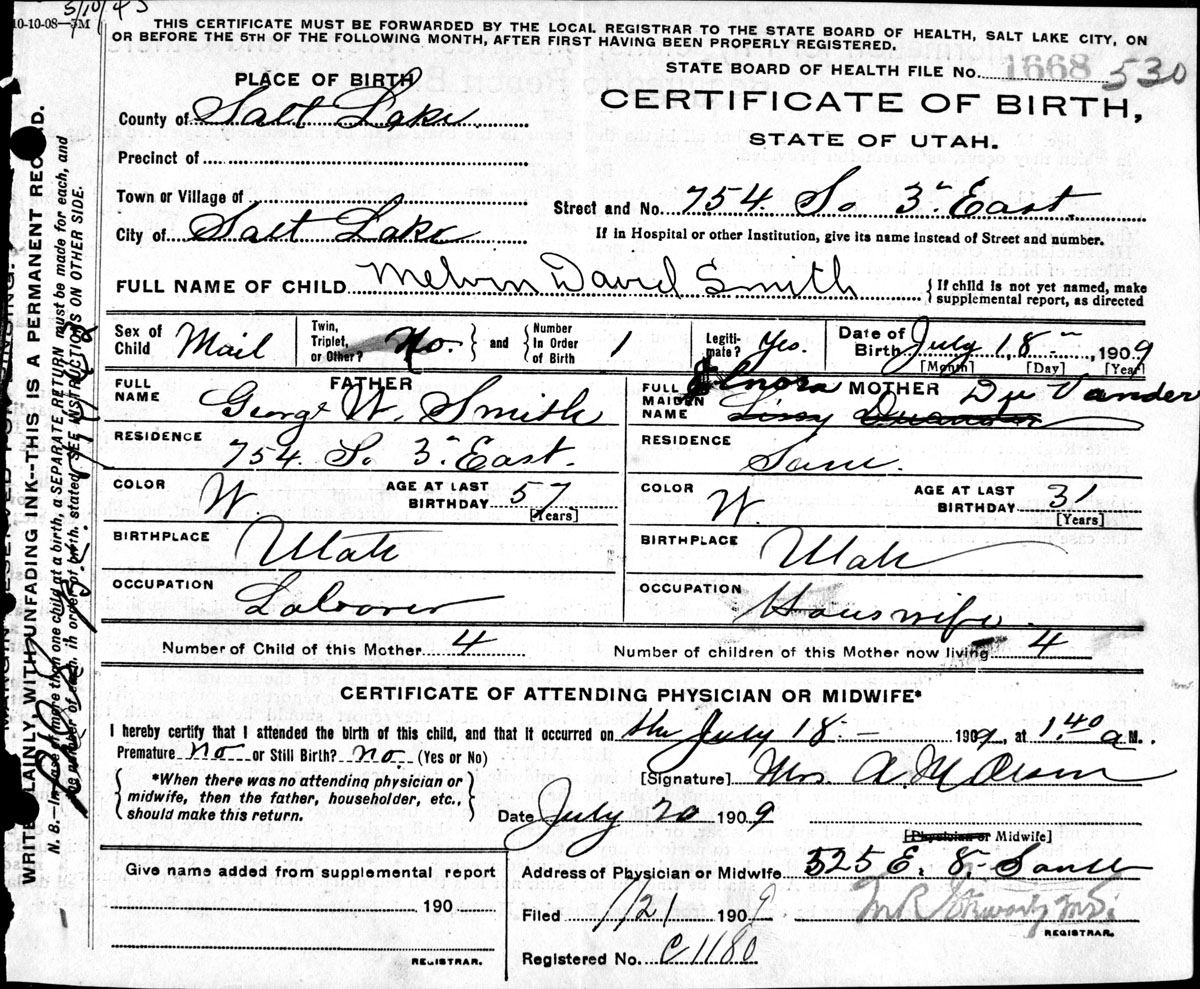 5/10/43
10-10-08—5M
THIS CERTIFICATE MUST BE FORWARDED BY THE LOCAL REGISTRAR TO THE STATE BOARD OF HEALTH, SALT LAKE CITY, ON
OR BEFORE THE 5TH OF THE FOLLOWING MONTH, AFTER FIRST HAVING BEEN PROPERLY REGISTERED.
STATE BOARD OF HEALTH FILE No. 1668 530
PLACE OF BIRTH
CERTIFICATE OF BIRTH,
STATE OF UTAH.
County of Salt Lake
Precinct of
Town or Village of
Street and No. 754. So 3" East.
City of Salt Lake
If in Hospital or other Institution, give its name instead of Street and number.
FULL NAME OF CHILD Melvin David Smith
{If child is not yet named, make
supplemental report, as directed
Sex of Child Mail
Twin, Triplet, or Other? No. } and { Number In Order of Birth 1
Legitimate? Yes.
Date of Birth July 18 1909
[Month] [Day] [Year]
FATHER
FULL NAME George W. Smith
RESIDENCE 754. So 3" East.
COLOR W
AGE AT LAST BIRTHDAY 57 [Years]
BIRTHPLACE Utah
OCCUPATION Laborer
MOTHER
FULL MAIDEN NAME Elnora Du Vander
Lissy
RESIDENCE Same.
COLOR W.
AGE AT LAST BIRTHDAY 31 [Years]
BIRTHPLACE Utah
OCCUPATION Houswife
Number of Child of this Mother 4
Number of children of this Mother now living 4
CERTIFICATE OF ATTENDING PHYSICIAN OR MIDWIFE*
I hereby certify that I attended the birth of this child, and that it occurred on the July 18 1909, at 1.40 a M.
Premature no or Still Birth? no. (Yes or No)
{*When there was no attending physician or
midwife, then the father, householder, etc.,
should make this return.}
[Signature] Mrs A. M Olson
Date July 20 1909
[Physician or Midwife]
Address of Physician or Midwife 525 E. 8" South
Give name added from supplemental report
190
REGISTRAR.
Filed 7/21 1909
REGISTRAR.
Registered No. C1180
WRITE PLAINLY WITH UNFADING INK--THIS IS A PERMANENT RECORD.
N. B.—In case of more than one child at a birth, a SEPARATE RETURN must be made for each, and
the number of each, in order of birth, stated. SEE INSTRUCTIONS ON OTHER SIDE.